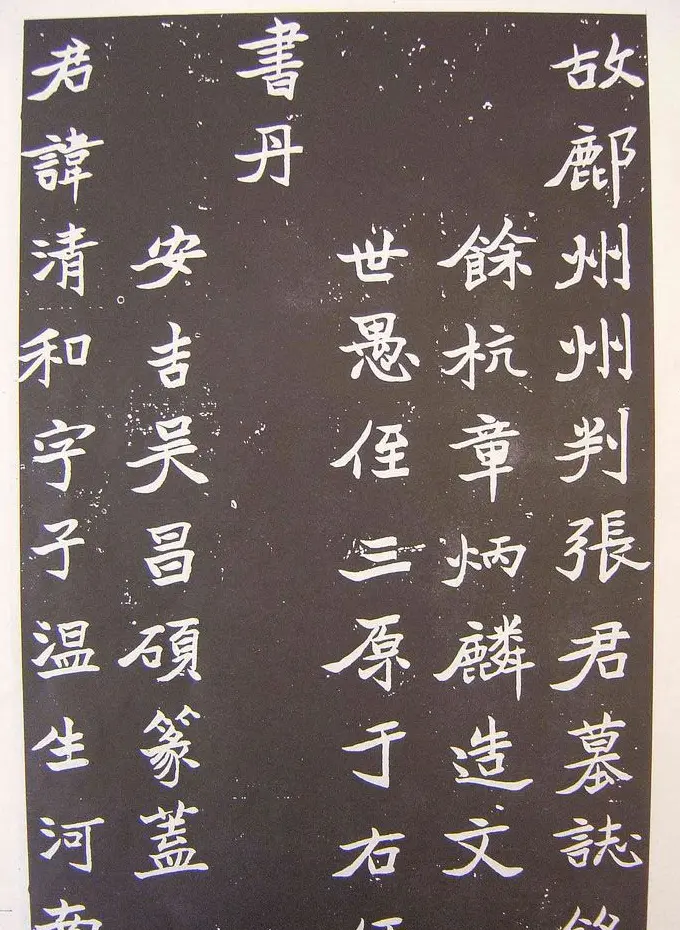 故鄜州州判張君墓誌銘
餘杭章炳麟造文
世愚侄三原于右任
書丹
安吉吴昌碩篆蓋
君諱清和字子温生河南